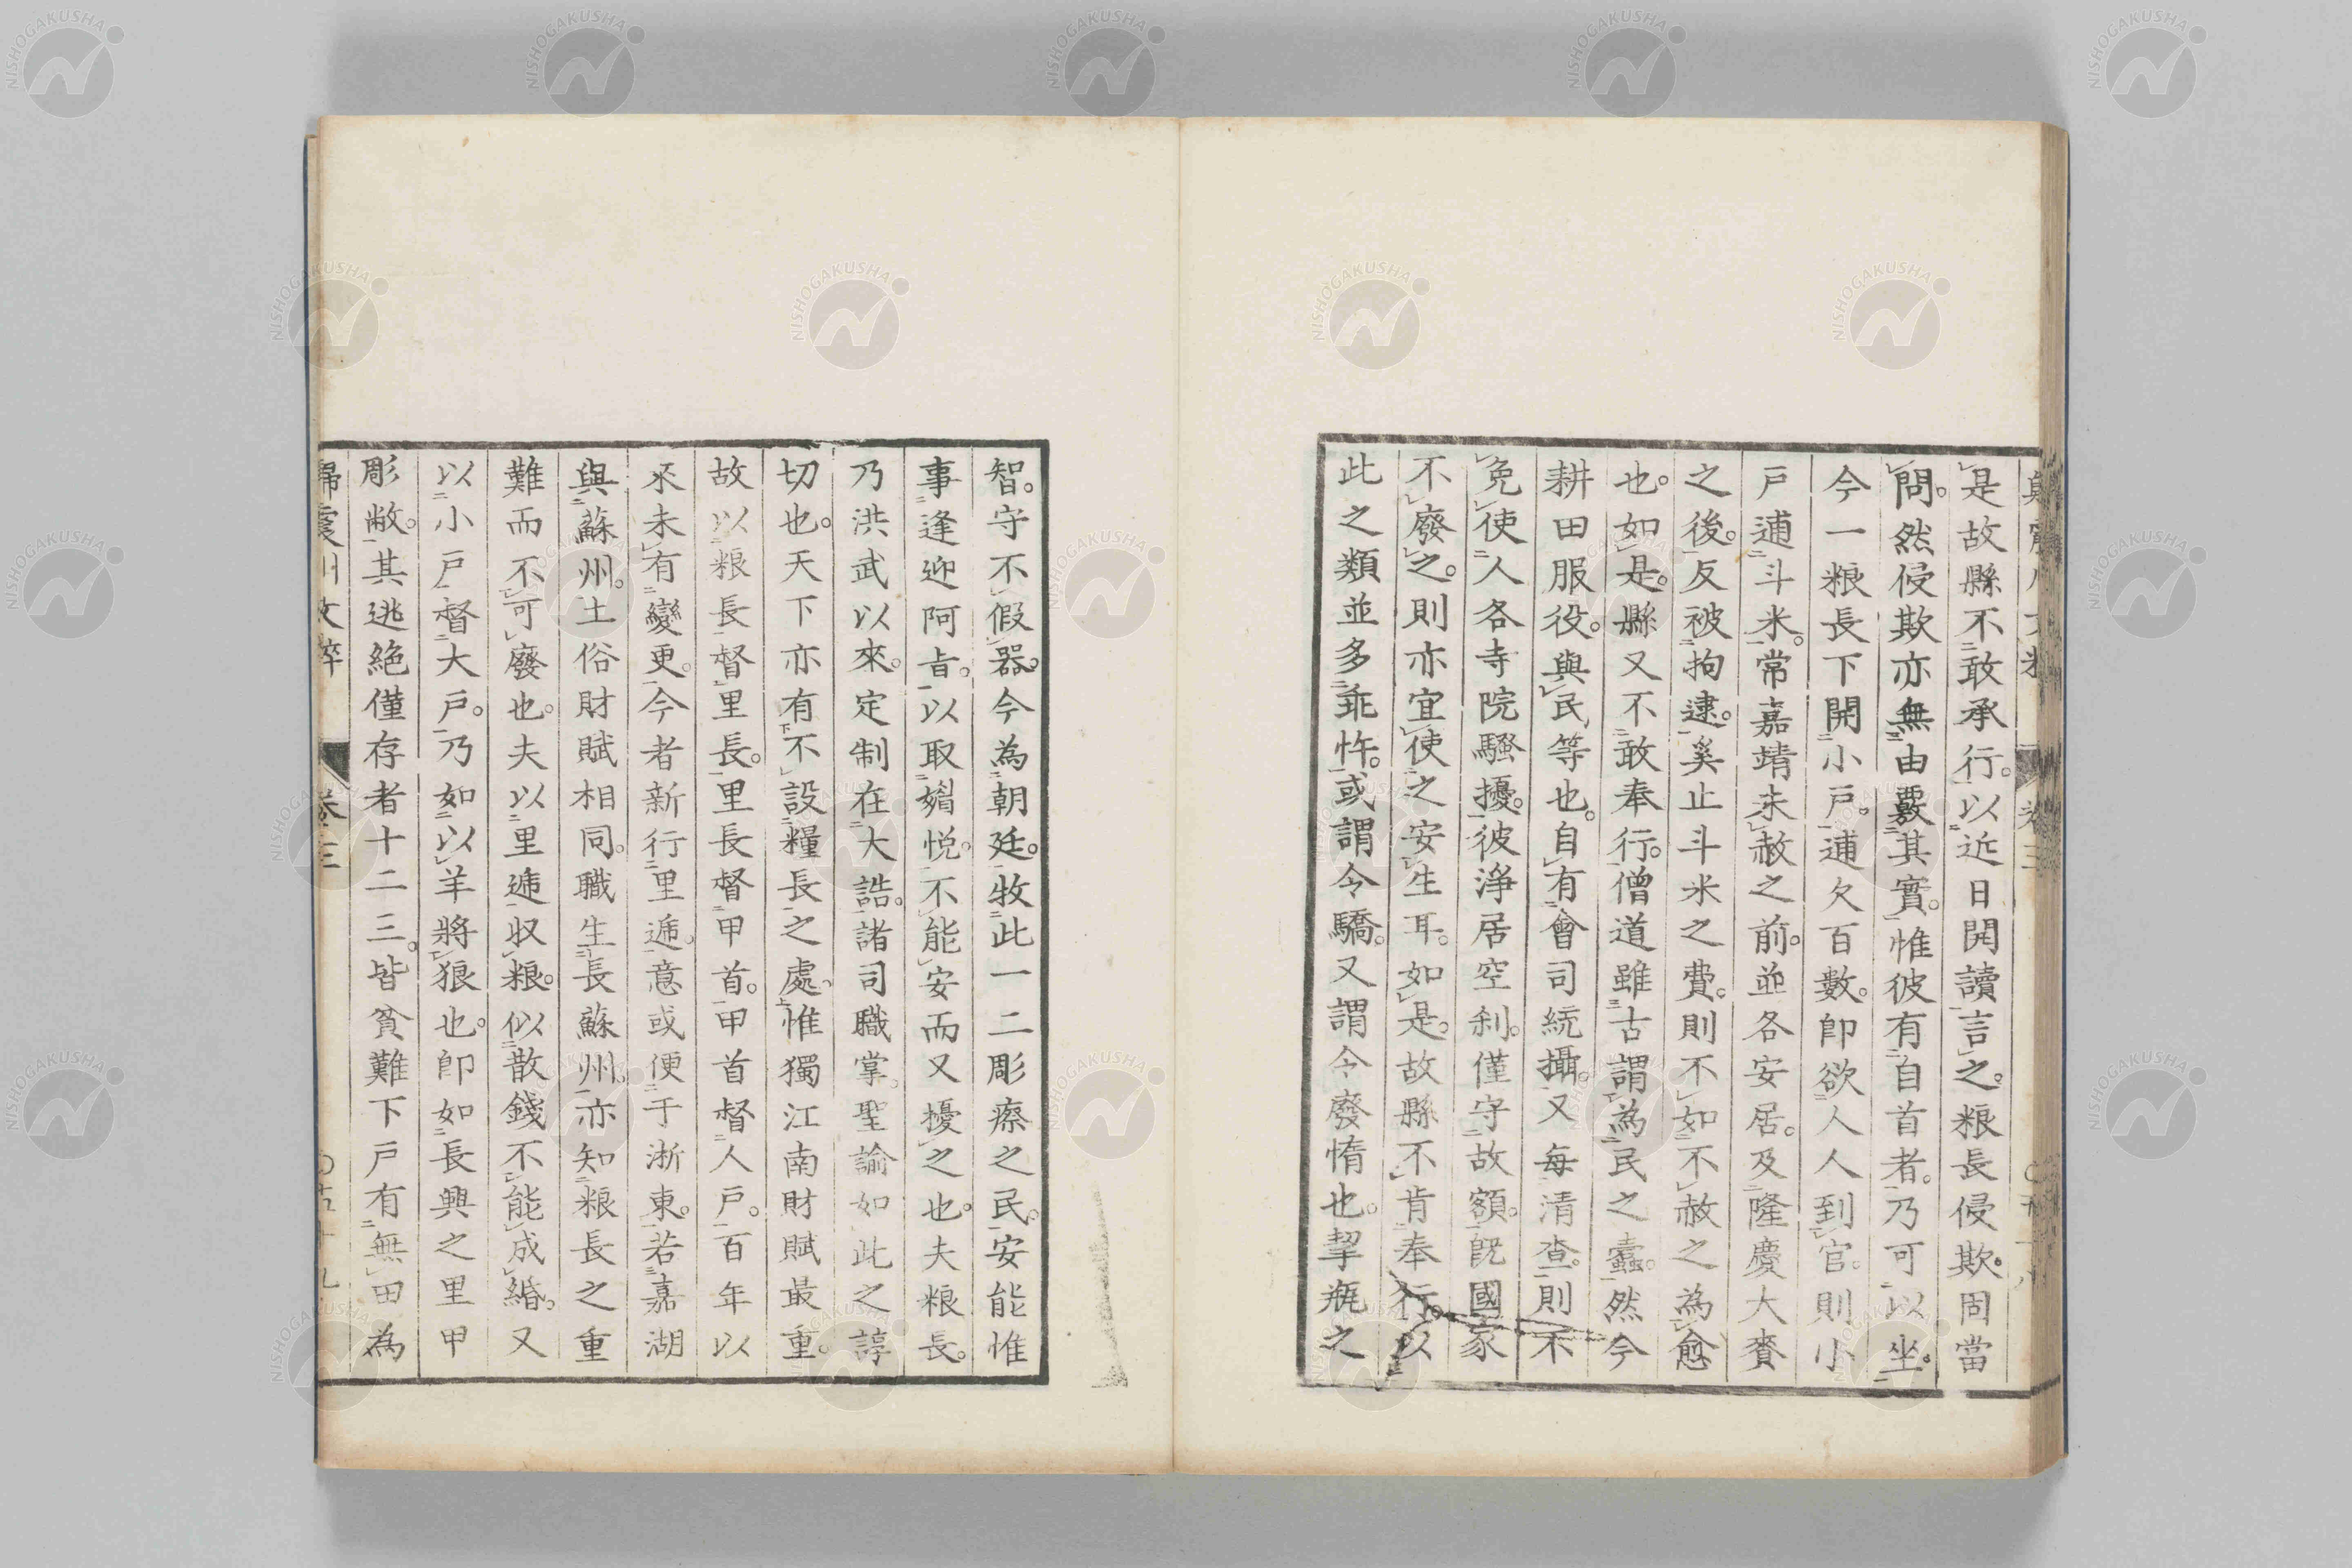 是故縣不敢承行。以近日開讀言之。粮長侵欺。固當
問。然侵欺亦無由覈其實。惟彼有自首者。乃可以坐。
今一粮長下開小戶。逋欠百數。卽欲人人到官。則小
戶逋斗米。常嘉靖未赦之前。並各安居。及隆慶大賚
之後。反被拘逮。奚止斗米之費。則不如不赦之為愈
也。如是。縣又不敢奉行。僧道雖古謂為民之蠹。然今
耕田服役。與民等也。自有會司統攝。又每清查。則不
免使人各寺院騷擾。彼淨居空刹。僅守故額。旣國家
不廢之。則亦宜使之安生耳。如是。故縣不肯奉行。以
此之類並多乖忤。或謂令驕。又謂令廢惰也。挈瓶之
智。守不假器。今為朝廷。牧此一二彫瘵之民。安能惟
事逢迎阿㫖。以取媚悦。不能安而又擾之也。夫粮長。
乃洪武以來。定制在大誥。諸司職掌。聖諭如此之諄
切也。天下亦有不設糧長之處。惟獨江南財賦最重。
故以粮長督里長。里長督甲首。甲首督人戶。百年以
來未有變更。今者新行里逓。意或便于浙東。若嘉湖
與蘇州。土俗財賦相同。職生長蘇州。亦知粮長之重
難而不可廢也。夫以里逓收粮。似散錢不能成緡。又
以小戶督大戶。乃如以羊將狼也。卽如長興之里甲
彫敝。其逃絕僅存者十二三。皆貧難下戶有無田為
歸震川文粹
卷三
〇五十九
NISHOGAKUSHA